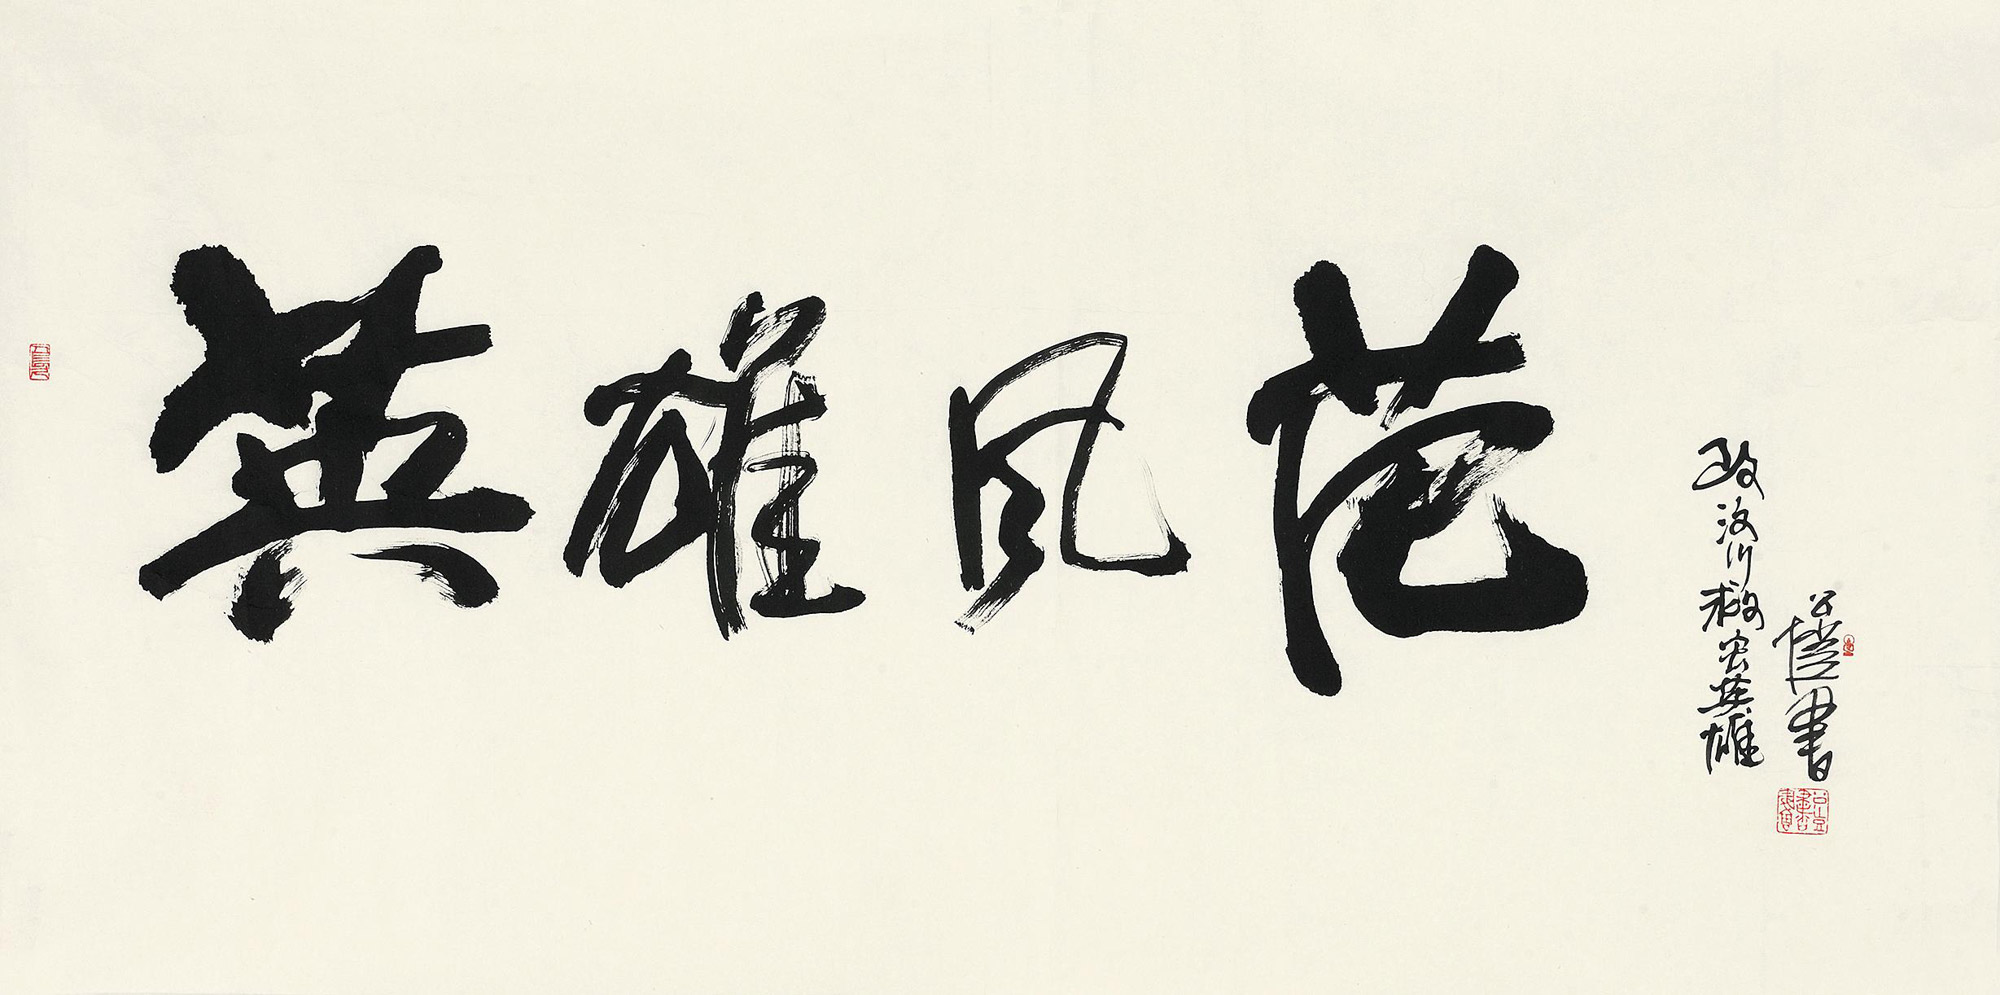 英雄风范
致汶川救灾英雄
書